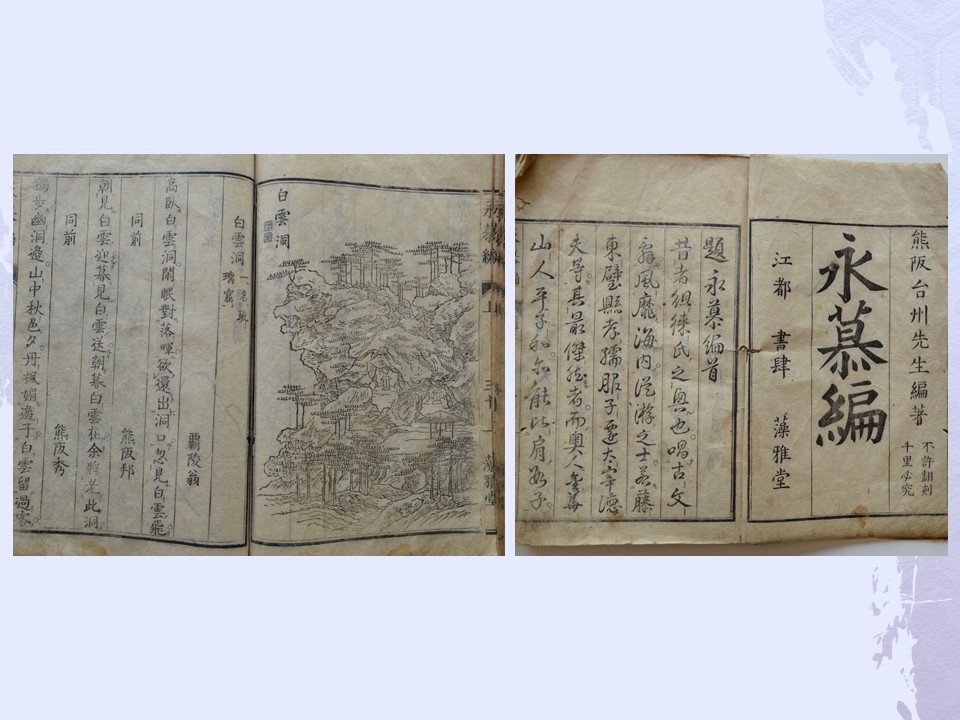 熊阪台州先生編著
不許翻刻
千里必究
永慕編
江都 書肆 藻雅堂
題永慕編首
昔者徂徠氏之興也。唱古文
辭。風靡海内。從游之士。若藤
東壁縣孝孺服子遷太宰德
夫等。其最傑然者。而奧人金華
山人平子和亦能比肩數子。
永慕編 上 三十 藻雅堂
白雲洞
白雲洞 一名
霸陵翁
高臥白雲洞閑眠對落暉。欲還出洞口。忽見白雲飛。
同前 熊阪邦
朝見白雲迎。暮見白雲送。朝暮白雲在。余將老此洞。
同前 熊阪秀
獨步幽洞邊。山中秋色夕。丹楓媚遊子。白雲留過客。